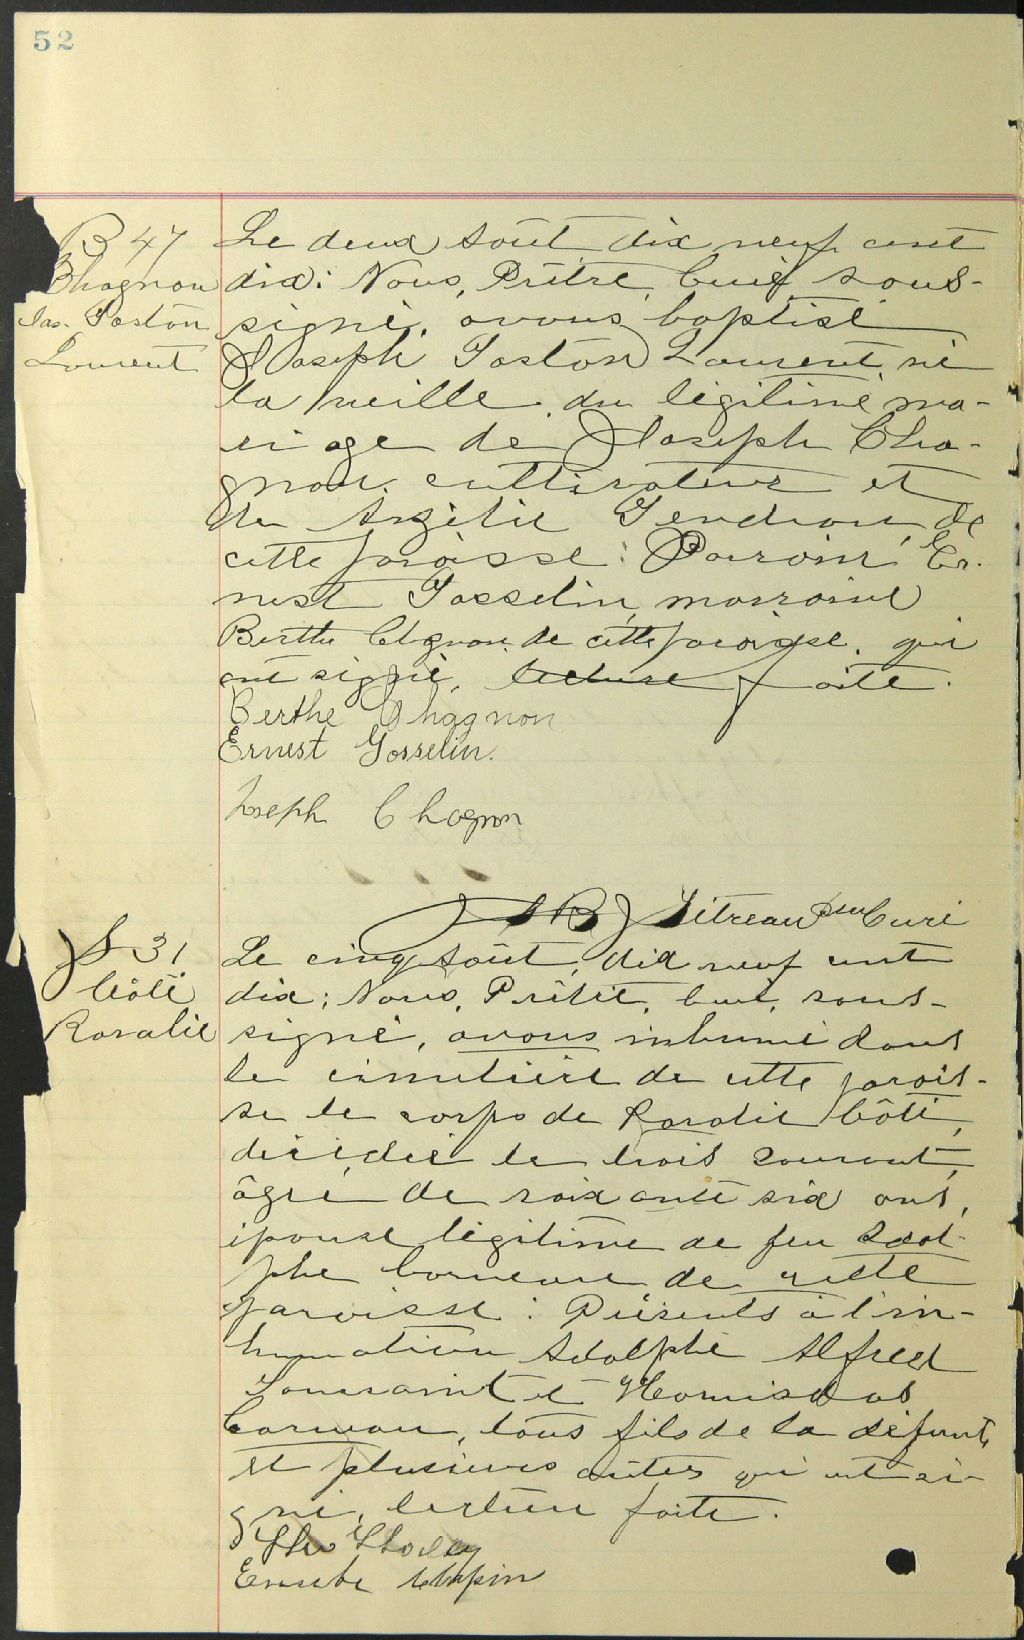 52
B 47
Chagnon
Jos. Gaston
Laurent
Le deux août dix neuf cent
dix: Nous, Prêtre, Curé sous-
signé, avons baptisé
Joseph Gaston Laurent, né
la veille, du légitime ma-
riage de Joseph Cha-
gnon cultivateur et
de Azélie Gendron de
cette paroisse: Parrain Er-
nest Gosselin, marraine
Berthe Chagnon de cette paroisse, qui
ont signé, lecture faite.
Berthe Chagnon
Ernest Gosselin.
Joseph Chagnon
J B Vitreau Ptre Curé
S 31
Côté
Rosalie
Le cinq août, dix neuf cent
dix; Nous, Prêtre, Curé, sous-
signé, avons inhumé dans
le cimetière de cette parois-
se le corps de Rosalie Côté,
décédée le trois courant,
âgée de soixante six ans,
épouse légitime de feu Adol-
phe de cette
paroisse: Présents à l'in-
humation Adolphe Alfred
Toussaint et Hormisdas
tous fils de la défunte
et plusieurs autres qui ont si-
gné, lecture faite.